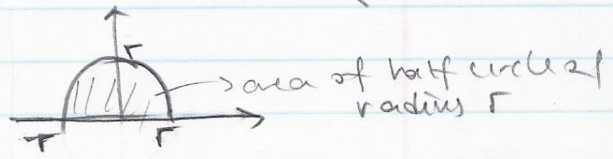 r
area of half circle of
radius r
-r
r